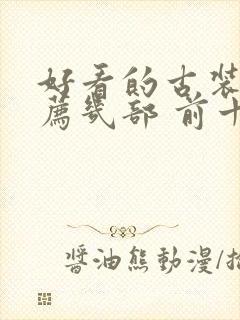 好看的古装
薦几部 前十
醬油熊動漫/推